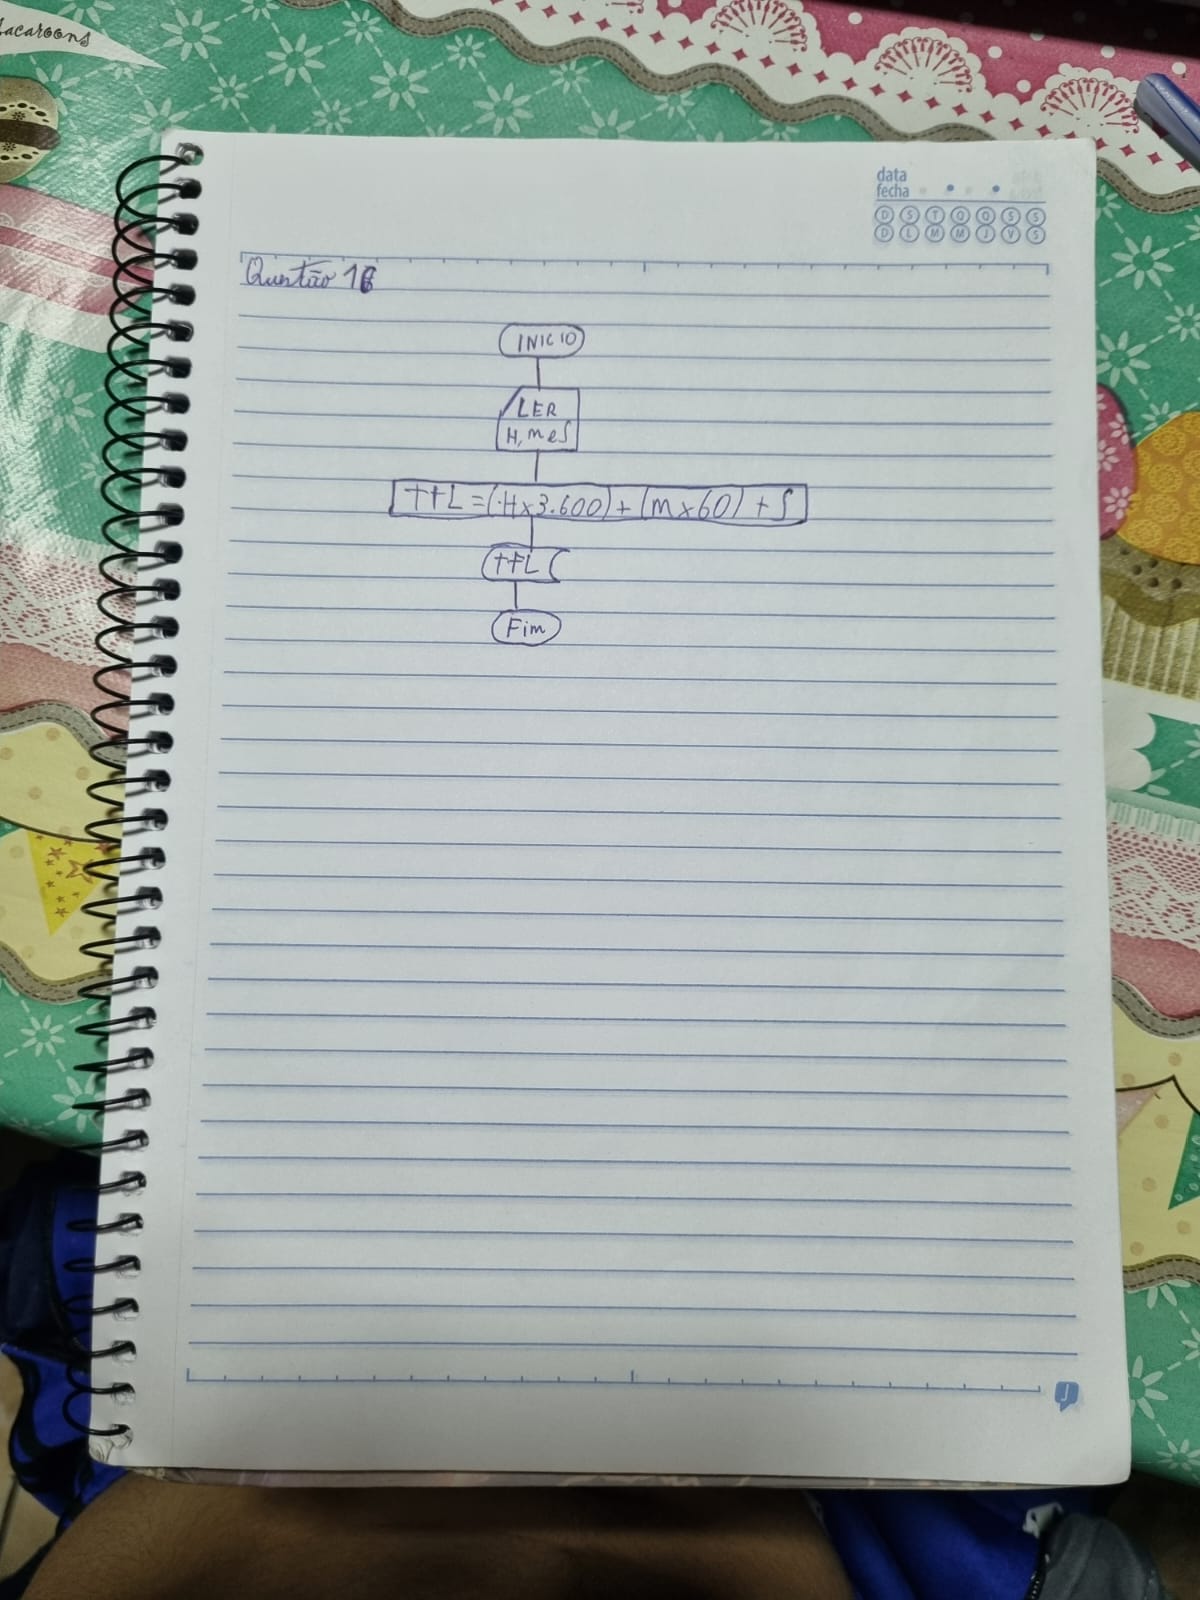 macaroons
data
fecha
D S T Q Q S S
D L M M J V S
Questão 16
INICIO
LER
H, m e S
TTL = (H x 3.600) + (m x 60) + S
TTL
Fim
J